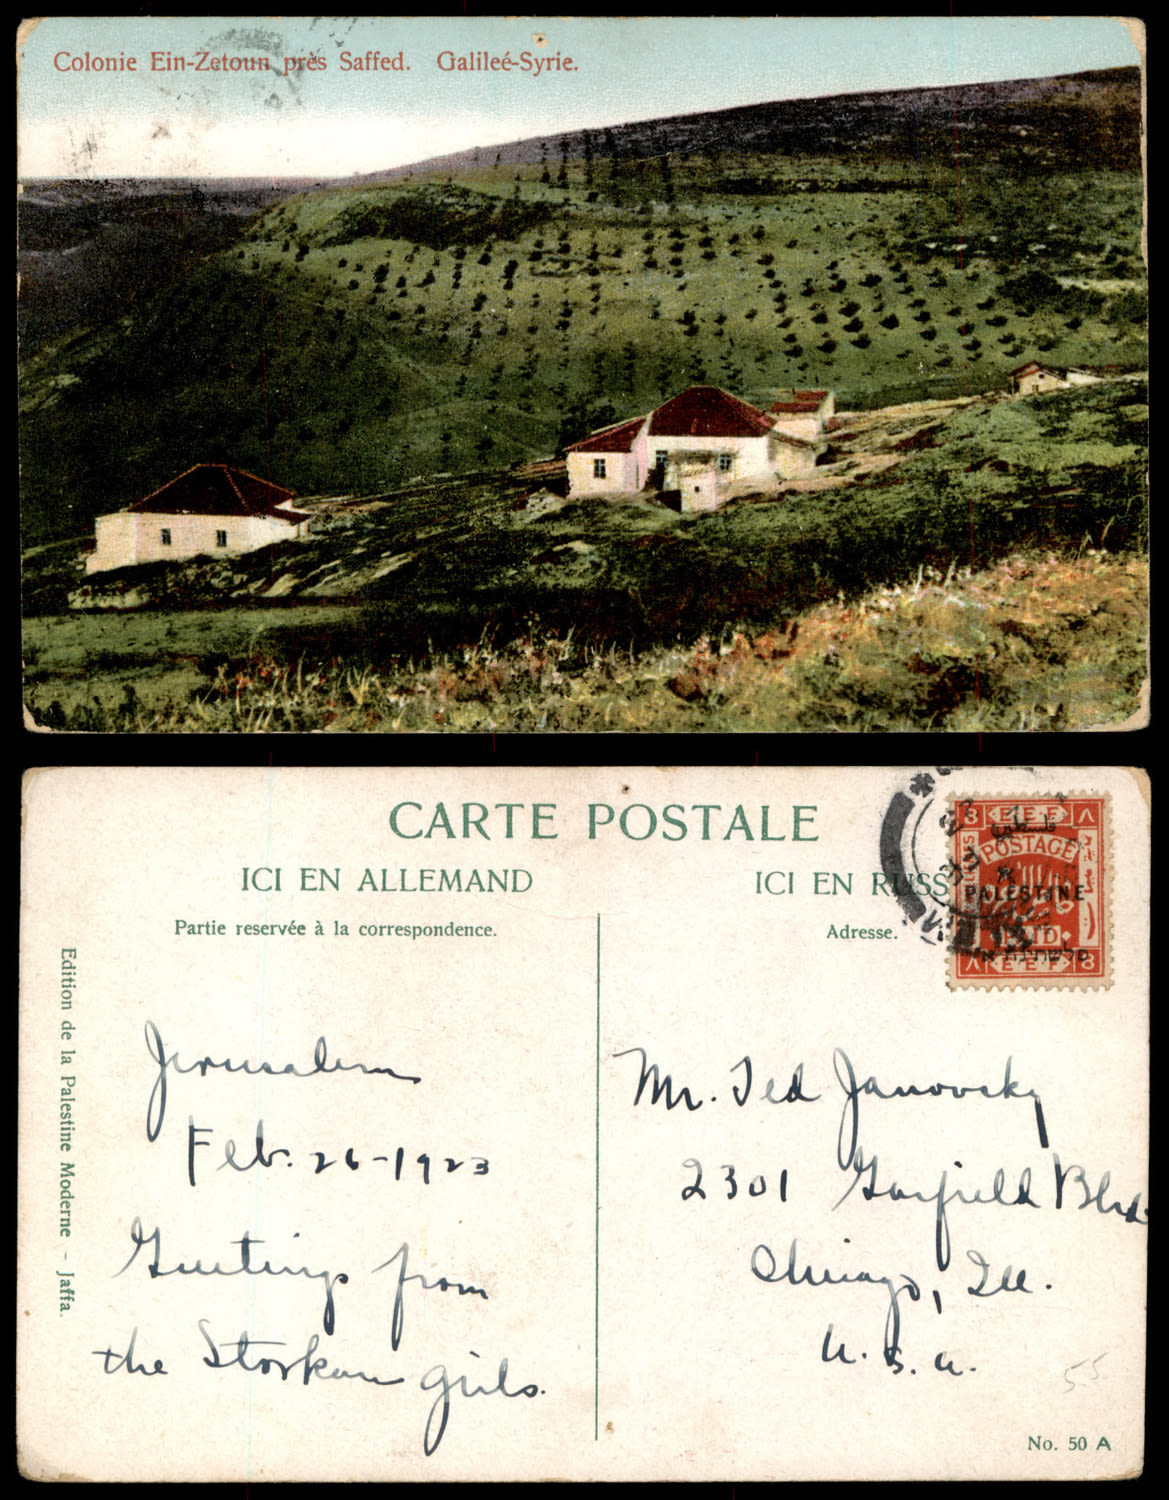 Colonie Ein-Zetoun près Saffed. Galileé-Syrie.
CARTE POSTALE
ICI EN ALLEMAND
ICI EN RUSS
Partie reservée à la correspondence.
Adresse.
Edition de la Palestine Moderne - Jaffa.
3 E.E.F. ٨
POSTAGE
PALESTINE
٨ E.E.F. 8
Jerusalem
Feb. 26-1923
Greetings from
the Storkan girls.
Mr. Ted Janovsky
2301 Garfield Blvd.
Chicago, Ill.
U.S.A.
55
No. 50 A